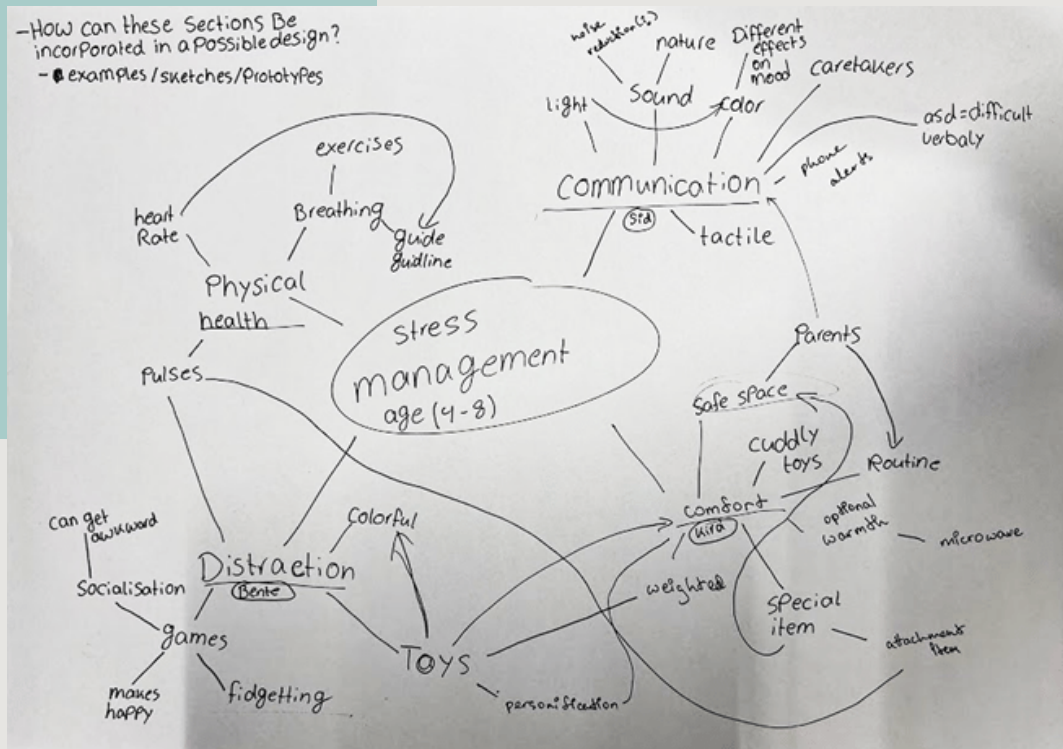 -How can these sections Be
incorporated in a possible design?
- examples/sketches/prototypes
noise
reduction(s)
nature
Different
effects
on
mood
caretakers
light
Sound
color
asd=difficult
verbaly
phone
alerts
Communication
Sid
tactile
exercises
heart
Rate
Breathing
guide
guidline
Physical
health
Pulses
stress
management
age (4-8)
Parents
Safe space
cuddly
toys
Routine
comfort
Kira
optional
warmth
microwave
weighted
special
item
attachment
item
can get
awkward
Colorful
Distraction
Bente
Socialisation
games
makes
happy
fidgetting
Toys
personification